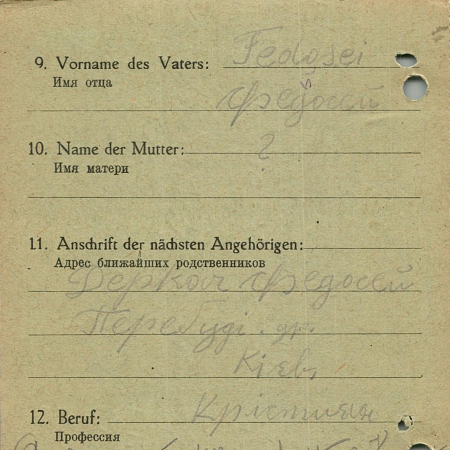 9. Vorname des Vaters: Fedosei
Имя отца
Федосей
10. Name der Mutter: ?
Имя матери
11. Anschrift der nächsten Angehörigen:
Адрес ближайших родственников
Деркач Федосей
Kiebs
12. Beruf:
Профессия